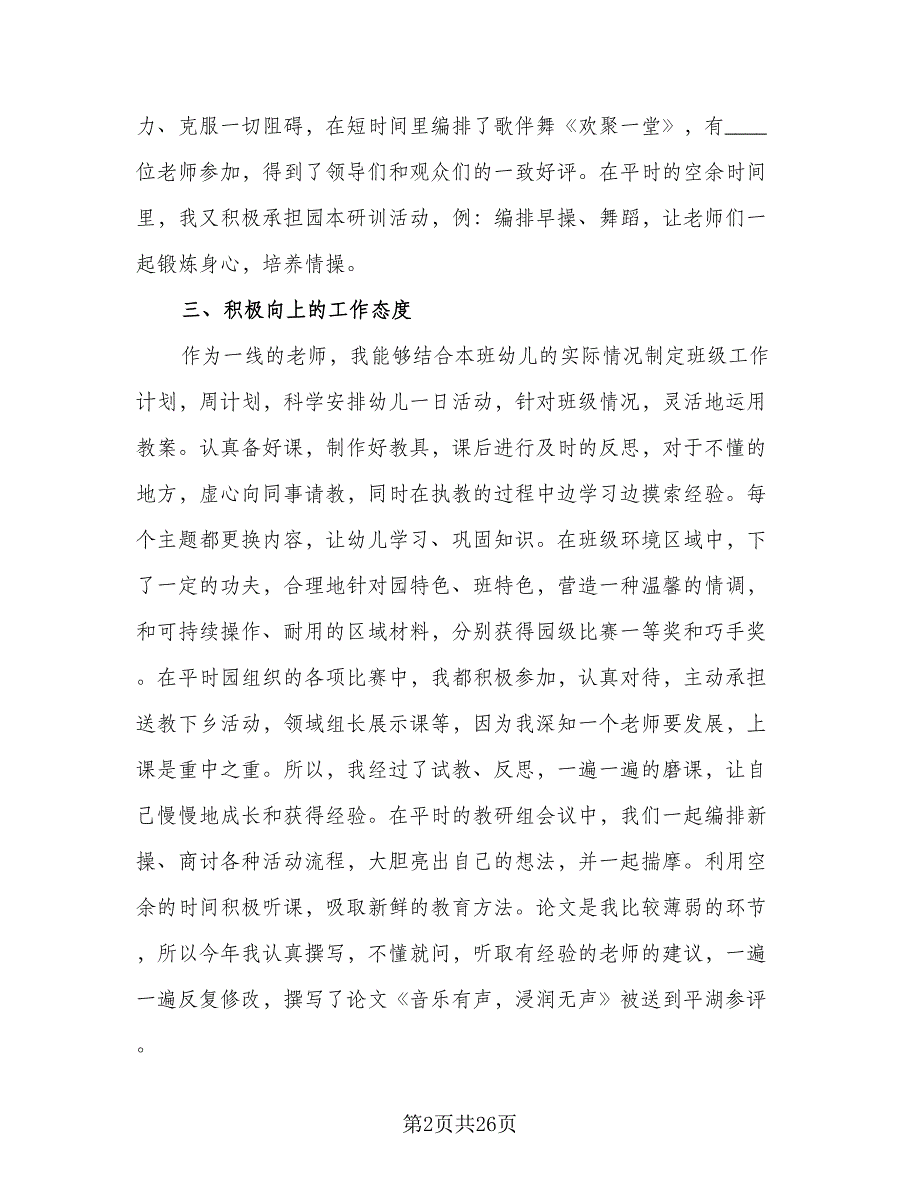 力、克服一切阻碍，在短时间里编排了歌伴舞《欢聚一堂》，有____
位老师参加，得到了领导们和观众们的一致好评。在平时的空余时间
里，我又积极承担园本研训活动，例：编排早操、舞蹈，让老师们一
起锻炼身心，培养情操。
三、积极向上的工作态度
作为一线的老师，我能够结合本班幼儿的实际情况制定班级工作
计划，周计划，科学安排幼儿一日活动，针对班级情况，灵活地运用
教案。认真备好课，制作好教具，课后进行及时的反思，对于不懂的
地方，虚心向同事请教，同时在执教的过程中边学习边摸索经验。每
个主题都更换内容，让幼儿学习、巩固知识。在班级环境区域中，下
了一定的功夫，合理地针对园特色、班特色，营造一种温馨的情调，
和可持续操作、耐用的区域材料，分别获得园级比赛一等奖和巧手奖
。在平时园组织的各项比赛中，我都积极参加，认真对待，主动承担
送教下乡活动，领域组长展示课等，因为我深知一个老师要发展，上
课是重中之重。所以，我经过了试教、反思，一遍一遍的磨课，让自
己慢慢地成长和获得经验。在平时的教研组会议中，我们一起编排新
操、商讨各种活动流程，大胆亮出自己的想法，并一起揣摩。利用空
余的时间积极听课，吸取新鲜的教育方法。论文是我比较薄弱的环节
，所以今年我认真撰写，不懂就问，听取有经验的老师的建议，一遍
一遍反复修改，撰写了论文《音乐有声，浸润无声》被送到平湖参评
。
第2页共26页